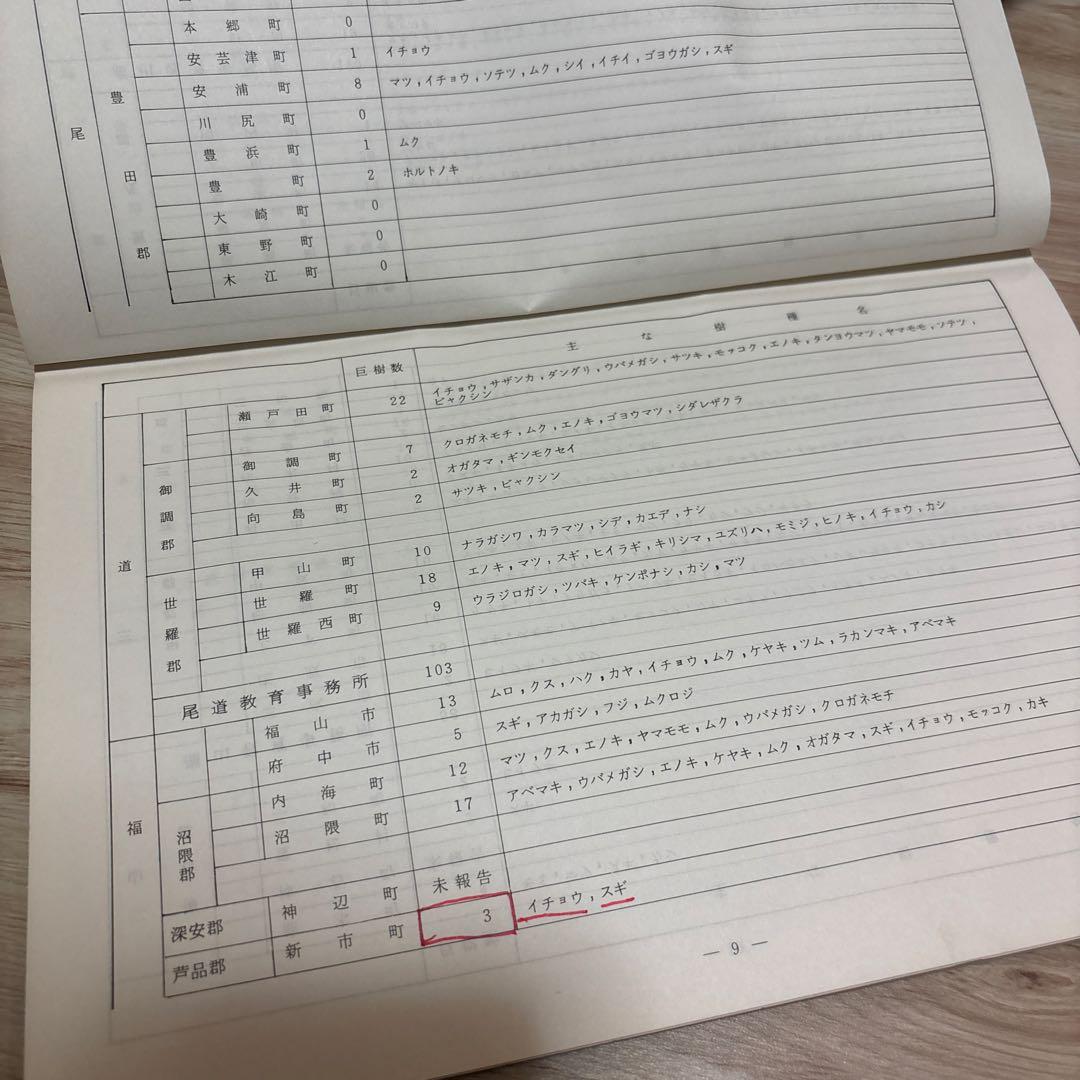 本郷町 0
安芸津町 1 イチョウ
安浦町 8 マツ,イチョウ,ソテツ,ムク,シイ,イチイ,ゴヨウガシ,スギ
川尻町 0
豊浜町 1 ムク
豊町 2 ホルトノキ
大崎町 0
東野町 0
木江町 0
尾
豊田郡
巨樹数 主な樹種名
瀬戸田町 22 イチョウ,サザンカ,ダングリ,ウバメガシ,サツキ,モッコク,エノキ,タンヨウマツ,ヤマモモ,ソテツ,
ビャクシン
御調町 7 クロガネモチ,ムク,エノキ,ゴヨウマツ,シダレザクラ
久井町 2 オガタマ,ギンモクセイ
向島町 2 サツキ,ビャクシン
御調郡
甲山町 10 ナラガシワ,カラマツ,シデ,カエデ,ナシ
世羅町 18 エノキ,マツ,スギ,ヒイラギ,キリシマ,ユズリハ,モミジ,ヒノキ,イチョウ,カシ
世羅西町 9 ウラジロガシ,ツバキ,ケンポナシ,カシ,マツ
世羅郡
道
尾道教育事務所 103
福山市 13 ムロ,クス,ハク,カヤ,イチョウ,ムク,ケヤキ,ツム,ラカンマキ,アベマキ
府中市 5 スギ,アカガシ,フジ,ムクロジ
内海町 12 マツ,クス,エノキ,ヤマモモ,ムク,ウバメガシ,クロガネモチ
沼隈町 17 アベマキ,ウバメガシ,エノキ,ケヤキ,ムク,オガタマ,スギ,イチョウ,モッコク,カキ
沼隈郡
福
深安郡 神辺町 未報告
芦品郡 新市町 3 イチョウ,スギ
— 9 —